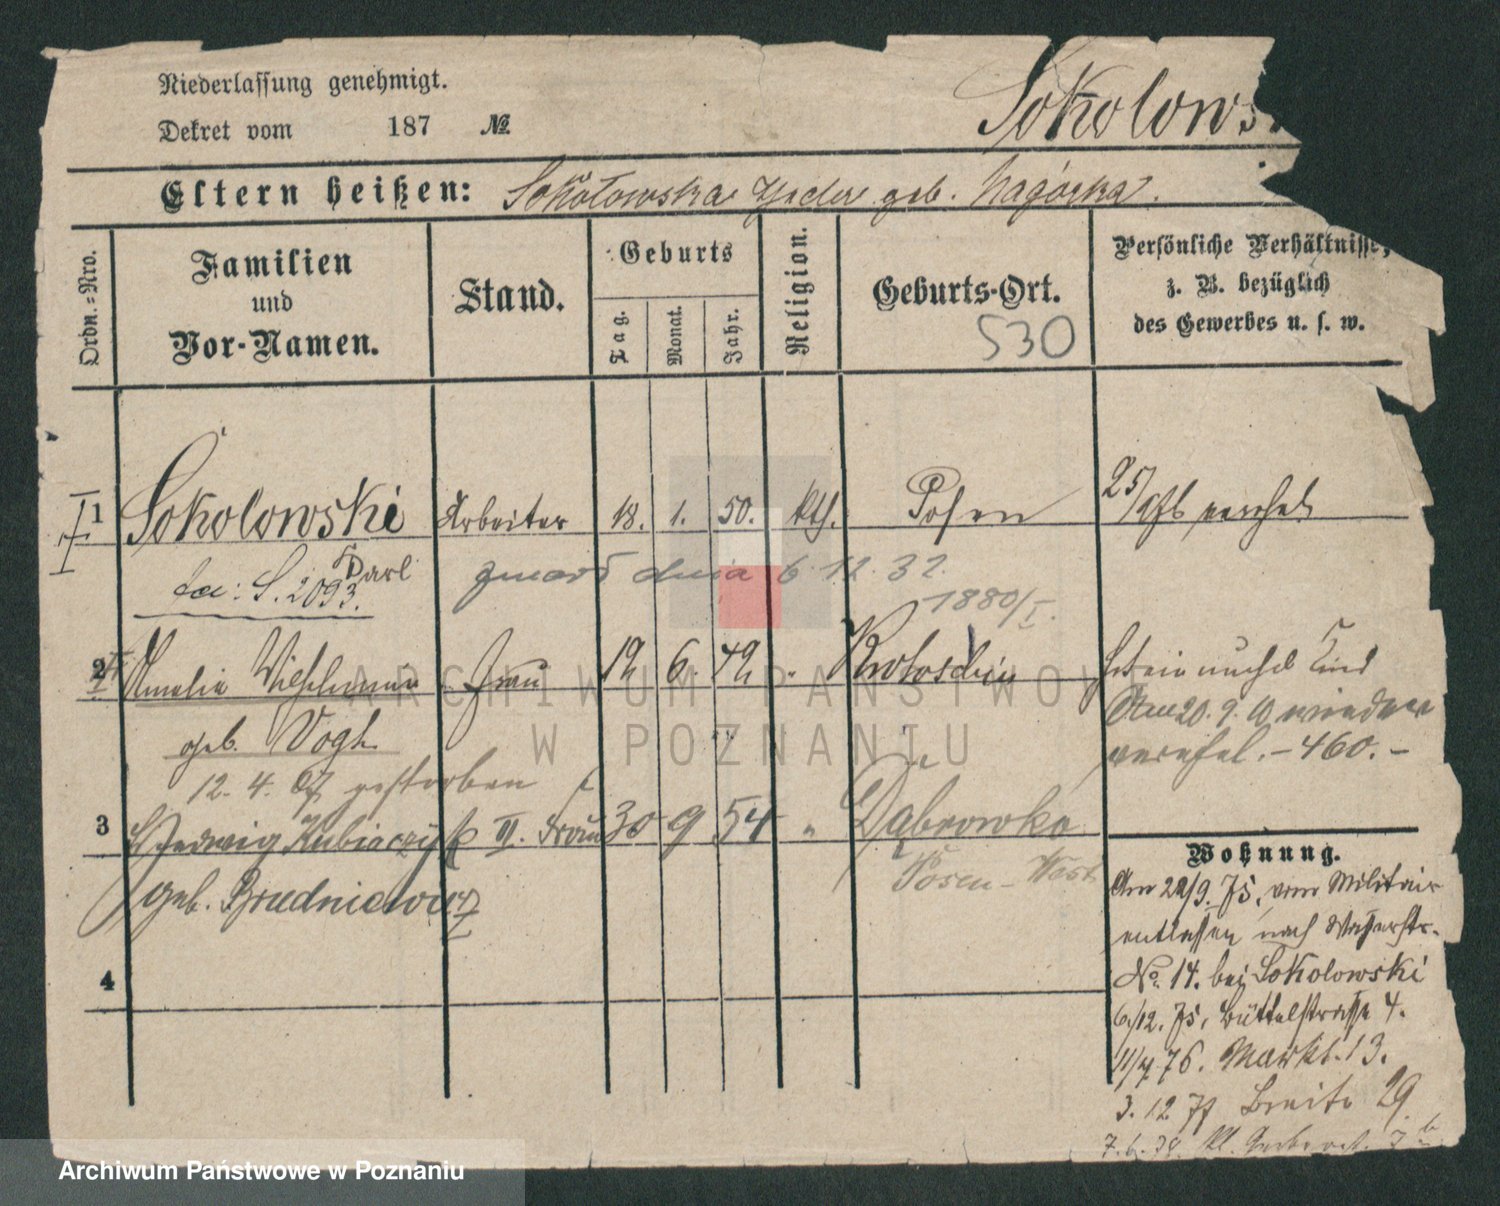 Niederlassung genehmigt.
Dekret vom 187 №
Sokolows
Eltern heißen: Sokołowska geb. Nagórka.
Ordn.-Nro.
Familien und Vor-Namen.
Stand.
Geburts
Tag. Monat. Jahr.
Religion.
Geburts-Ort.
530
Persönliche Verhältnisse,
z. B. bezüglich
des Gewerbes u. s. w.
1 Sokolowski Arbeiter 18. 1. 50. kth. Posen 25/
Carl
S. 2093.
zmarł dnia 6 12. 32.
1880/I.
2 Amalie Wilhelmine Frau 12 6. 42 " Krotoschin
geb. Vogt
20. 9. 10
460.-
12. 4. 07 gestorben
3 Hedwig Kubiaczyk II. Frau 30 9 54 " Dąbrowka
geb. Brudniewicz
Posen-West
4
Wohnung.
Am 22/9. 75, vom Militair
entlassen nach Wasserstr.
No. 14. bei Sokolowski
6/12. 75, Büttelstrasse 4.
11/4 76. Markt. 13.
3. 12 77 Breite 29
7. 6. 78. kl.
Archiwum Państwowe w Poznaniu
ARCHIWUM PAŃSTWOW
W POZNANIU